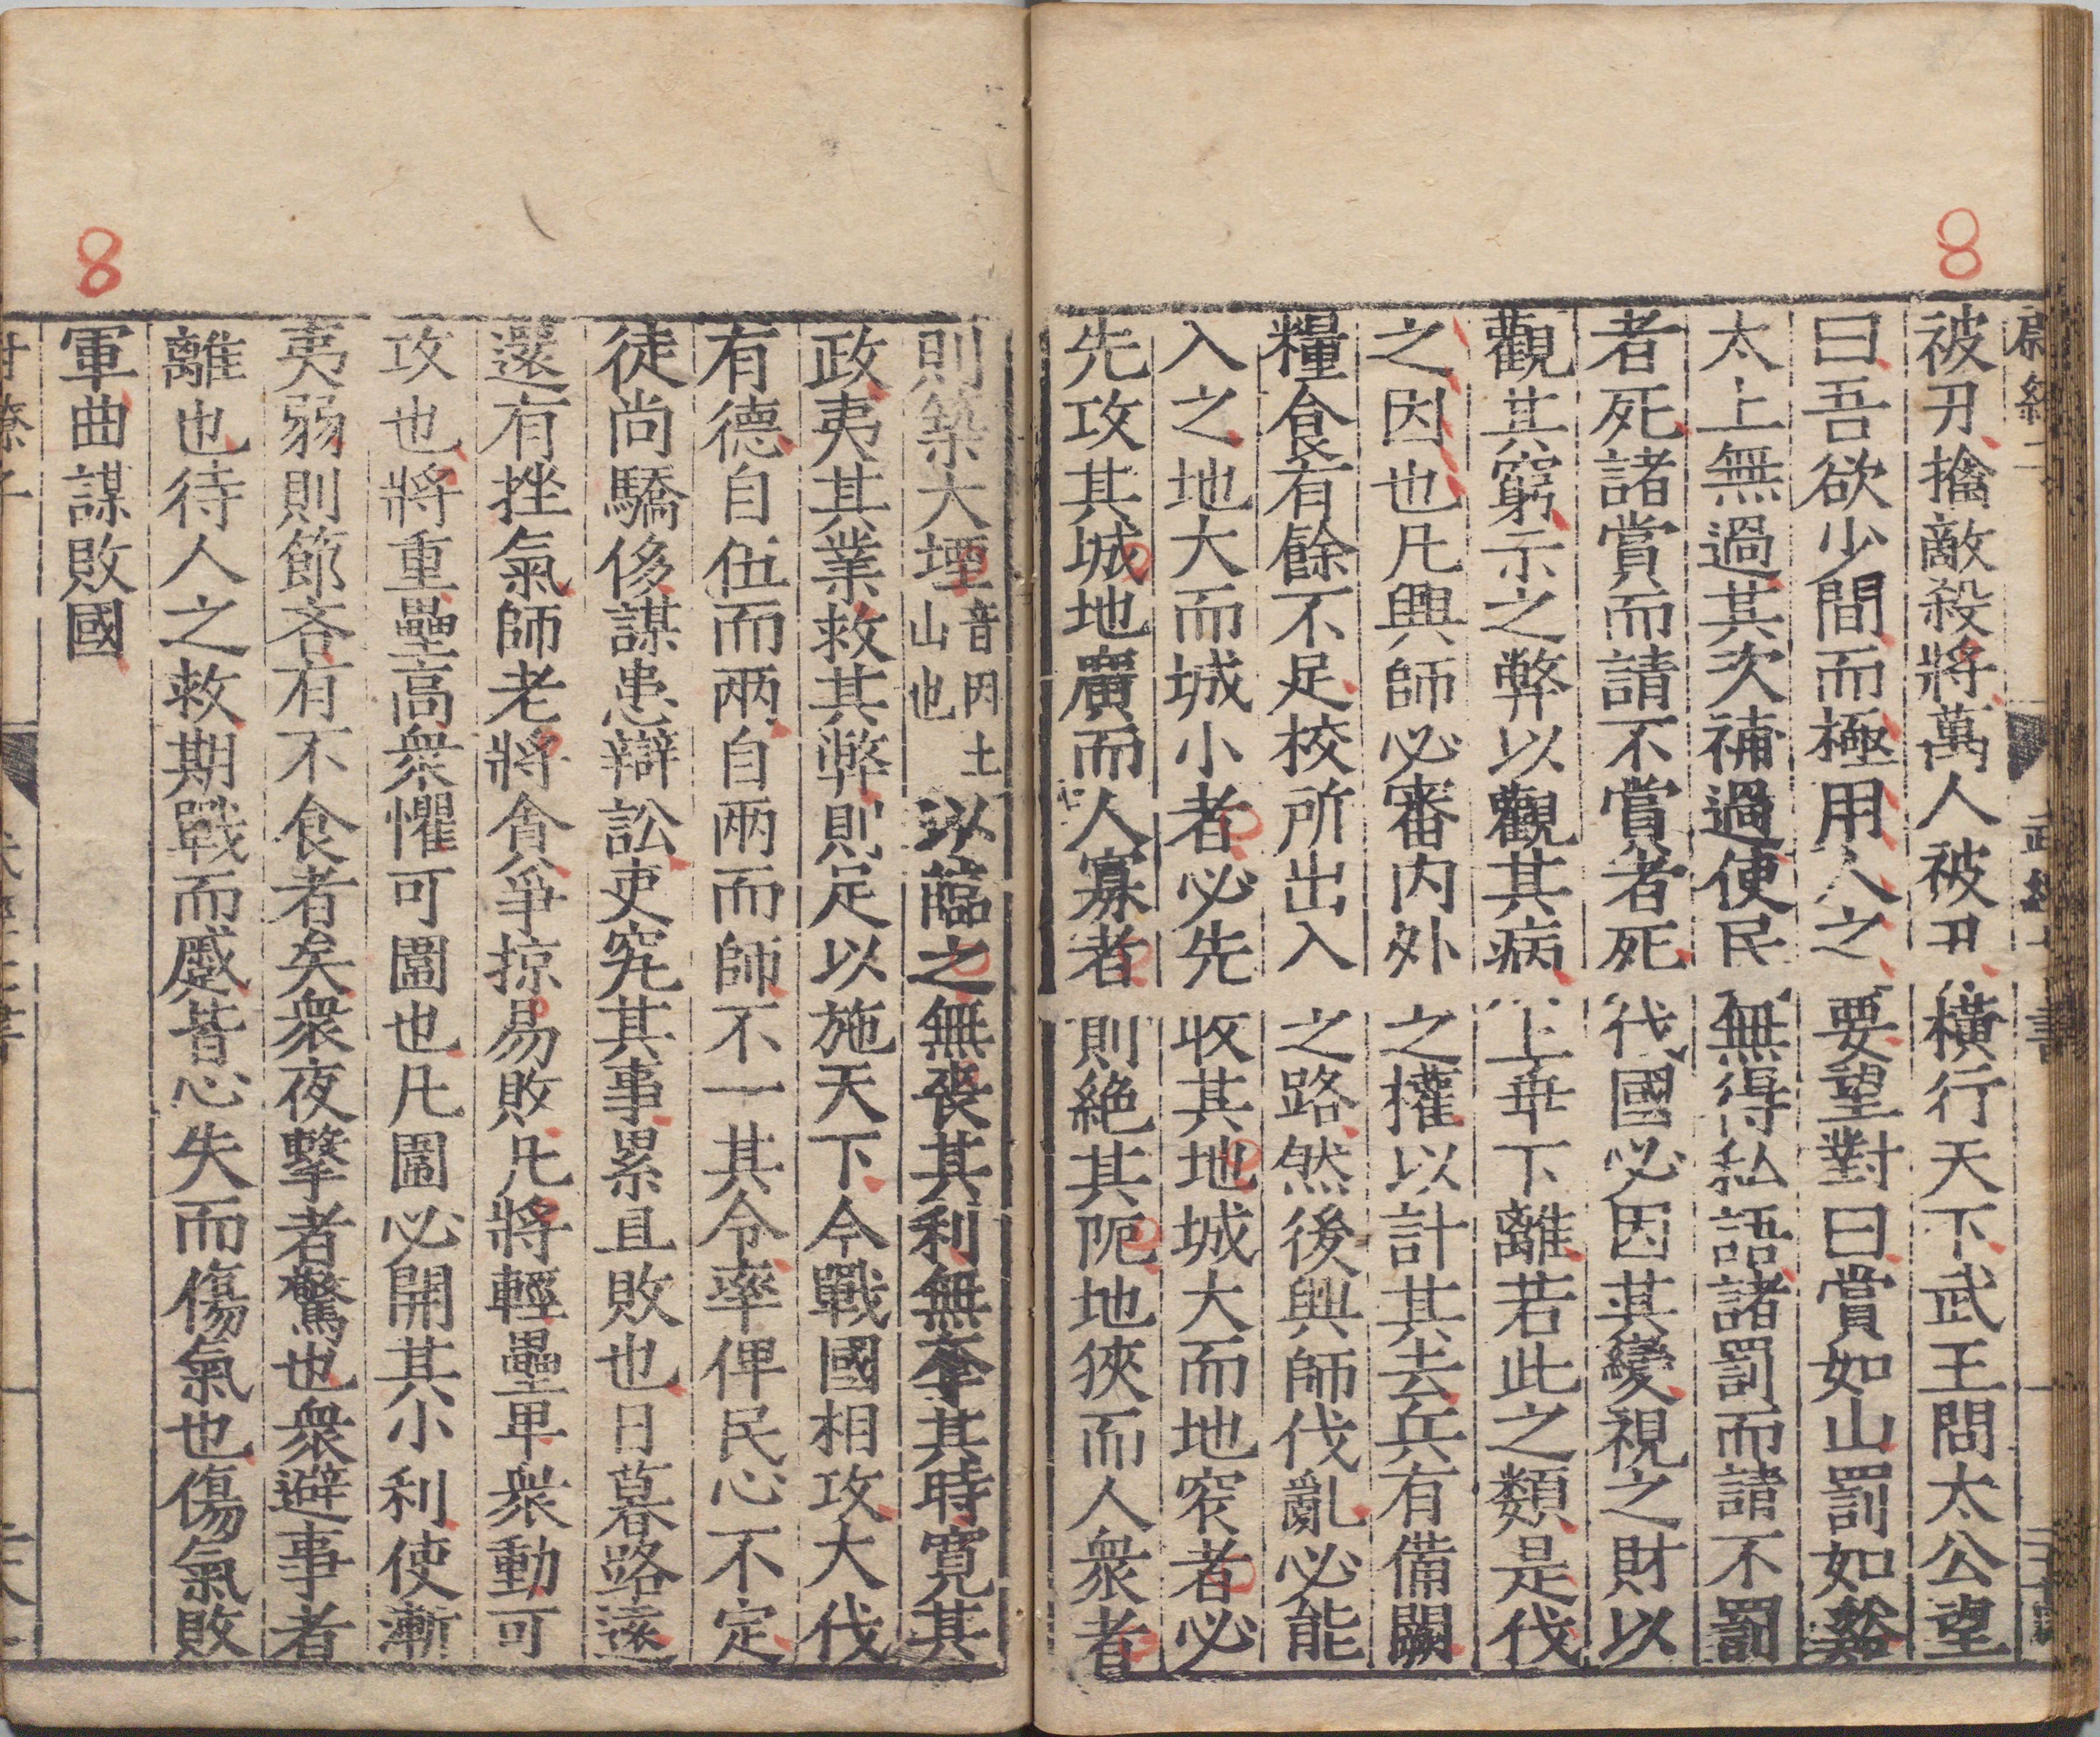 8
被刃擒敵殺將萬人被刃橫行天下武王問太公望
曰吾欲少間而極用人之要望對曰賞如山罰如谿
太上無過其次補過使民無得私語諸罰而請不罰
者死諸賞而請不賞者死伐國必因其變視之財以
觀其窮示之弊以觀其病上乖下離若此之類是伐
之因也凡興師必審內外之權以計其去兵有備闕
糧食有餘不足校所出入之路然後興師伐亂必能
入之地大而城小者必先收其地城大而地窄者必
先攻其城地廣而人寡者則絶其阨地狹而人衆者
則築大堙音因土山也以臨之無喪其利無奪其時寬其
政夷其業救其弊則足以施天下今戰國相攻大伐
有德自伍而兩自兩而師不一其令率俾民心不定
徒尚驕侈謀患辯訟吏究其事累且敗也日暮路遠
還有挫氣師老將貪爭掠易敗凡將輕壘卑衆動可
攻也將重壘高衆懼可圍也凡圍必開其小利使漸
夷弱則節吝有不食者矣衆夜擊者驚也衆避事者
離也待人之救期戰而蹙皆心失而傷氣也傷氣敗
軍曲謀敗國
8